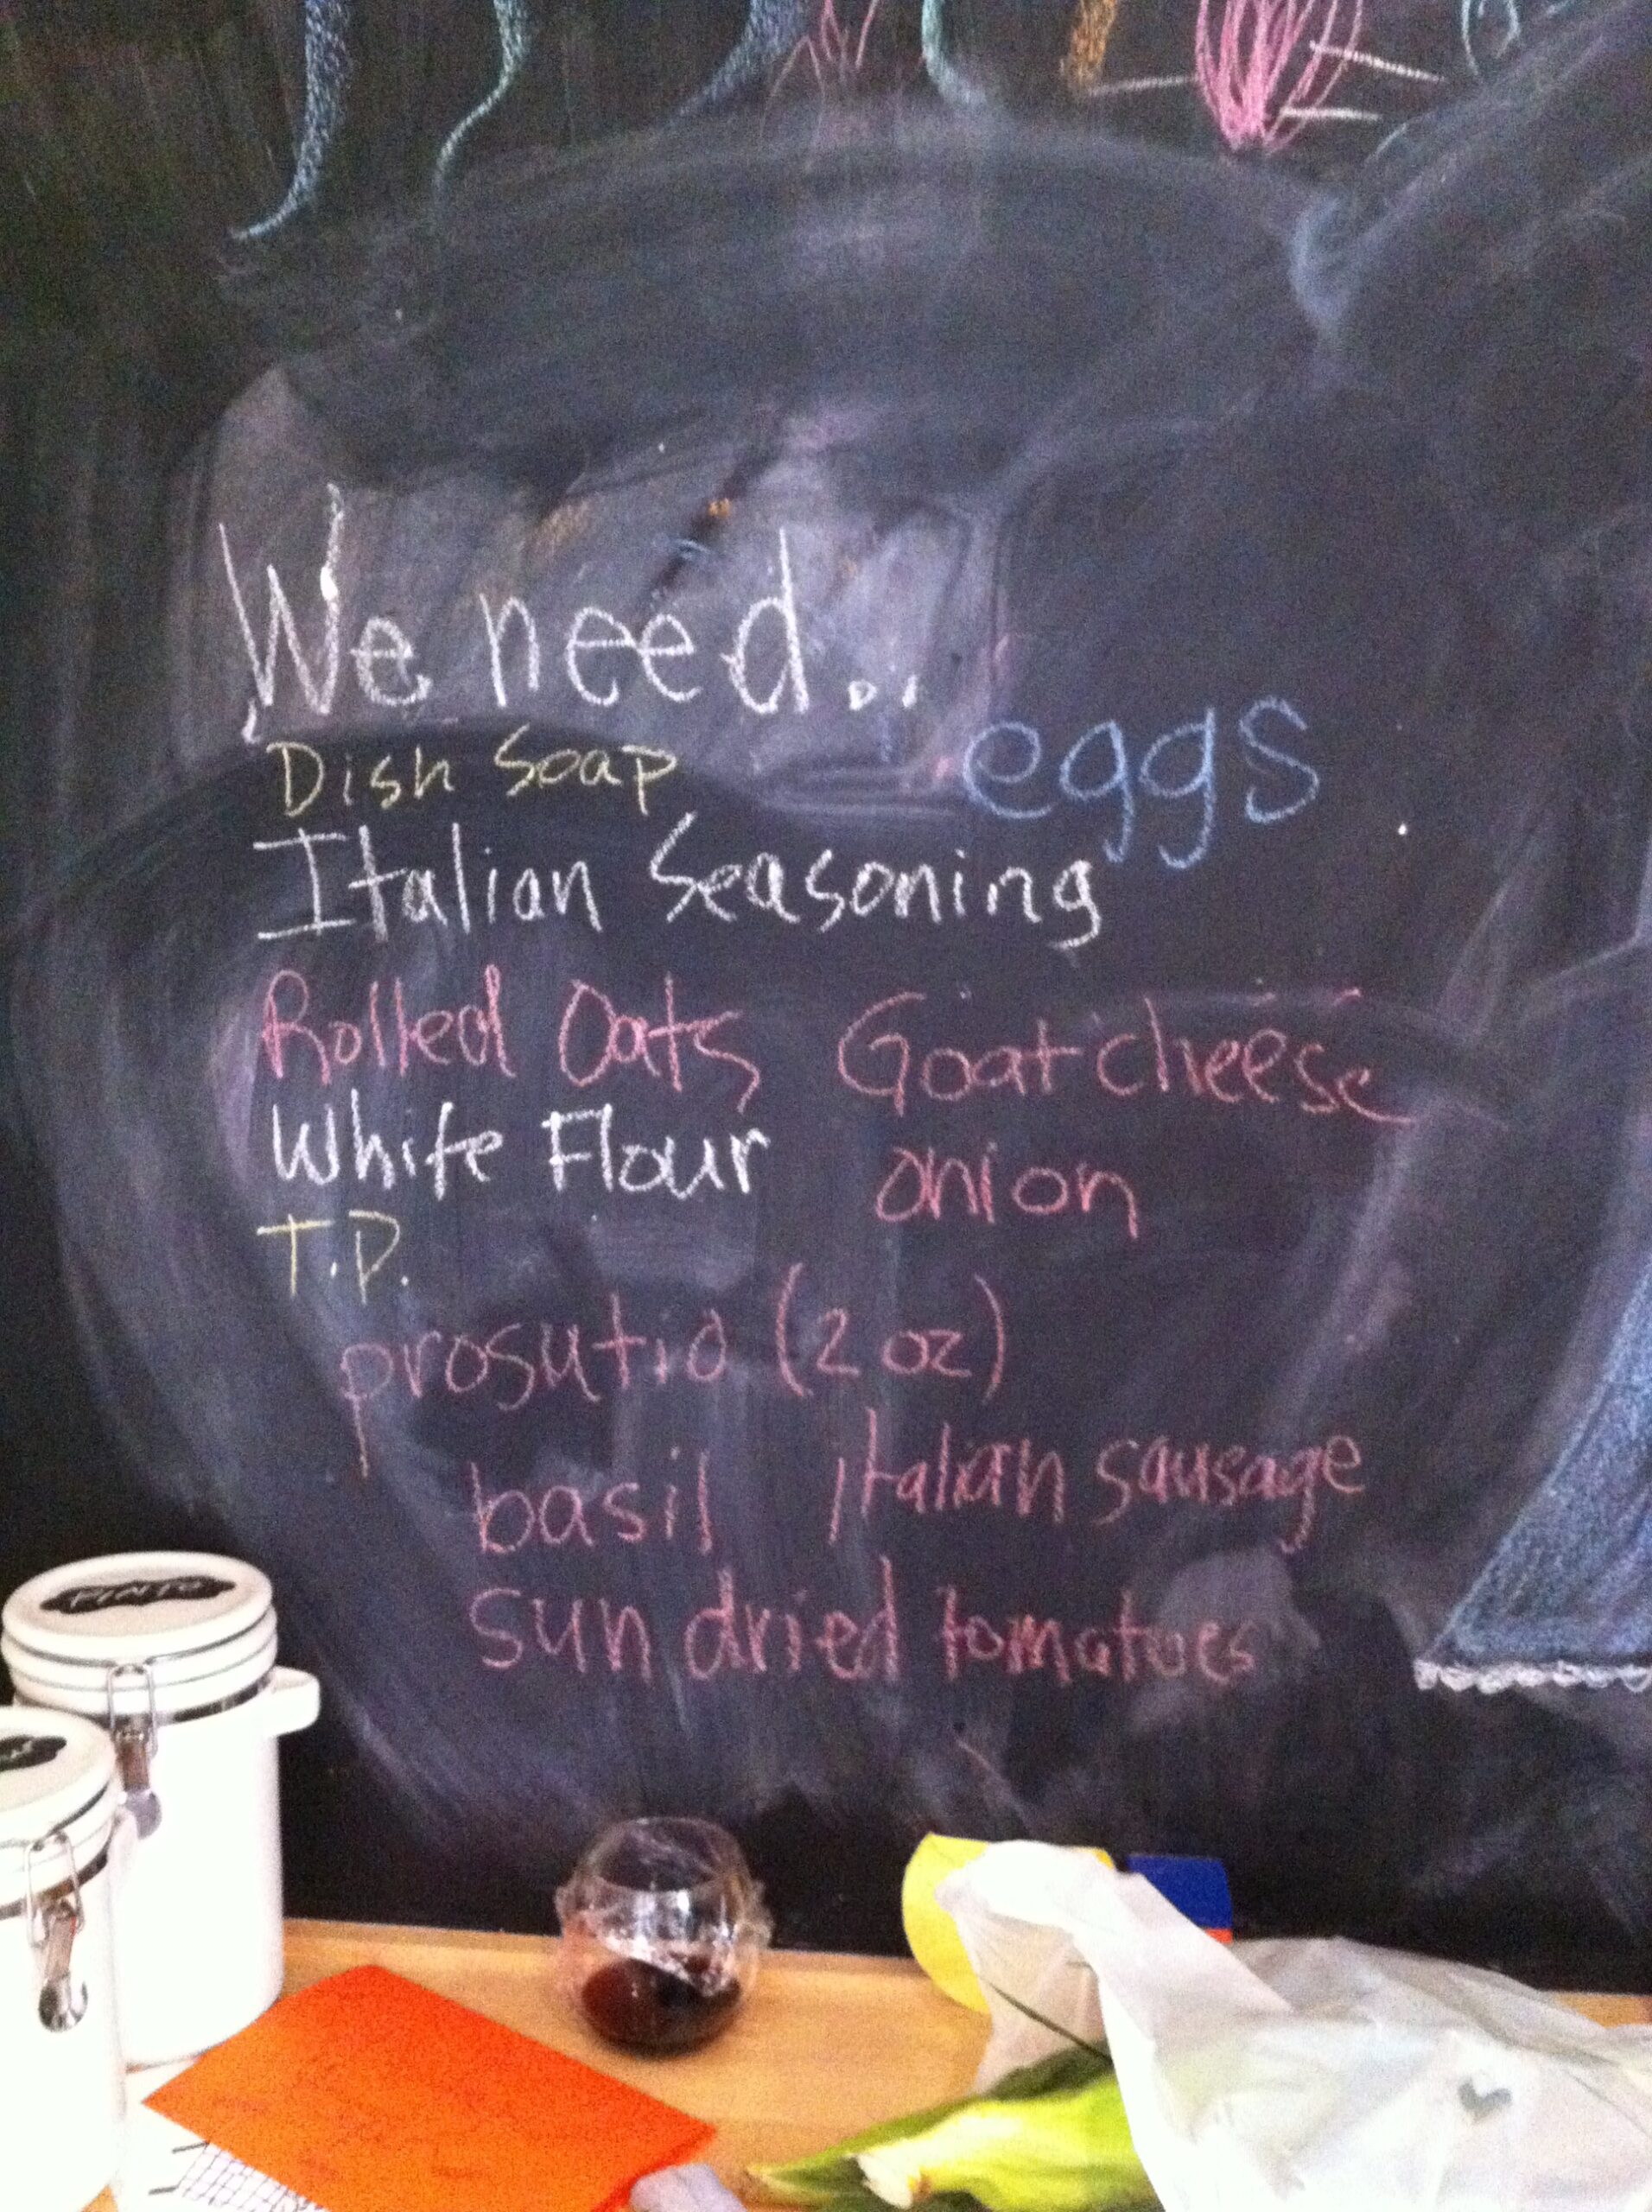 We need...
eggs
Dish Soap
Italian Seasoning
Rolled Oats Goat cheese
White Flour onion
T.P.
prosutio (2 oz)
basil italian sausage
sun dried tomatoes
PINTO